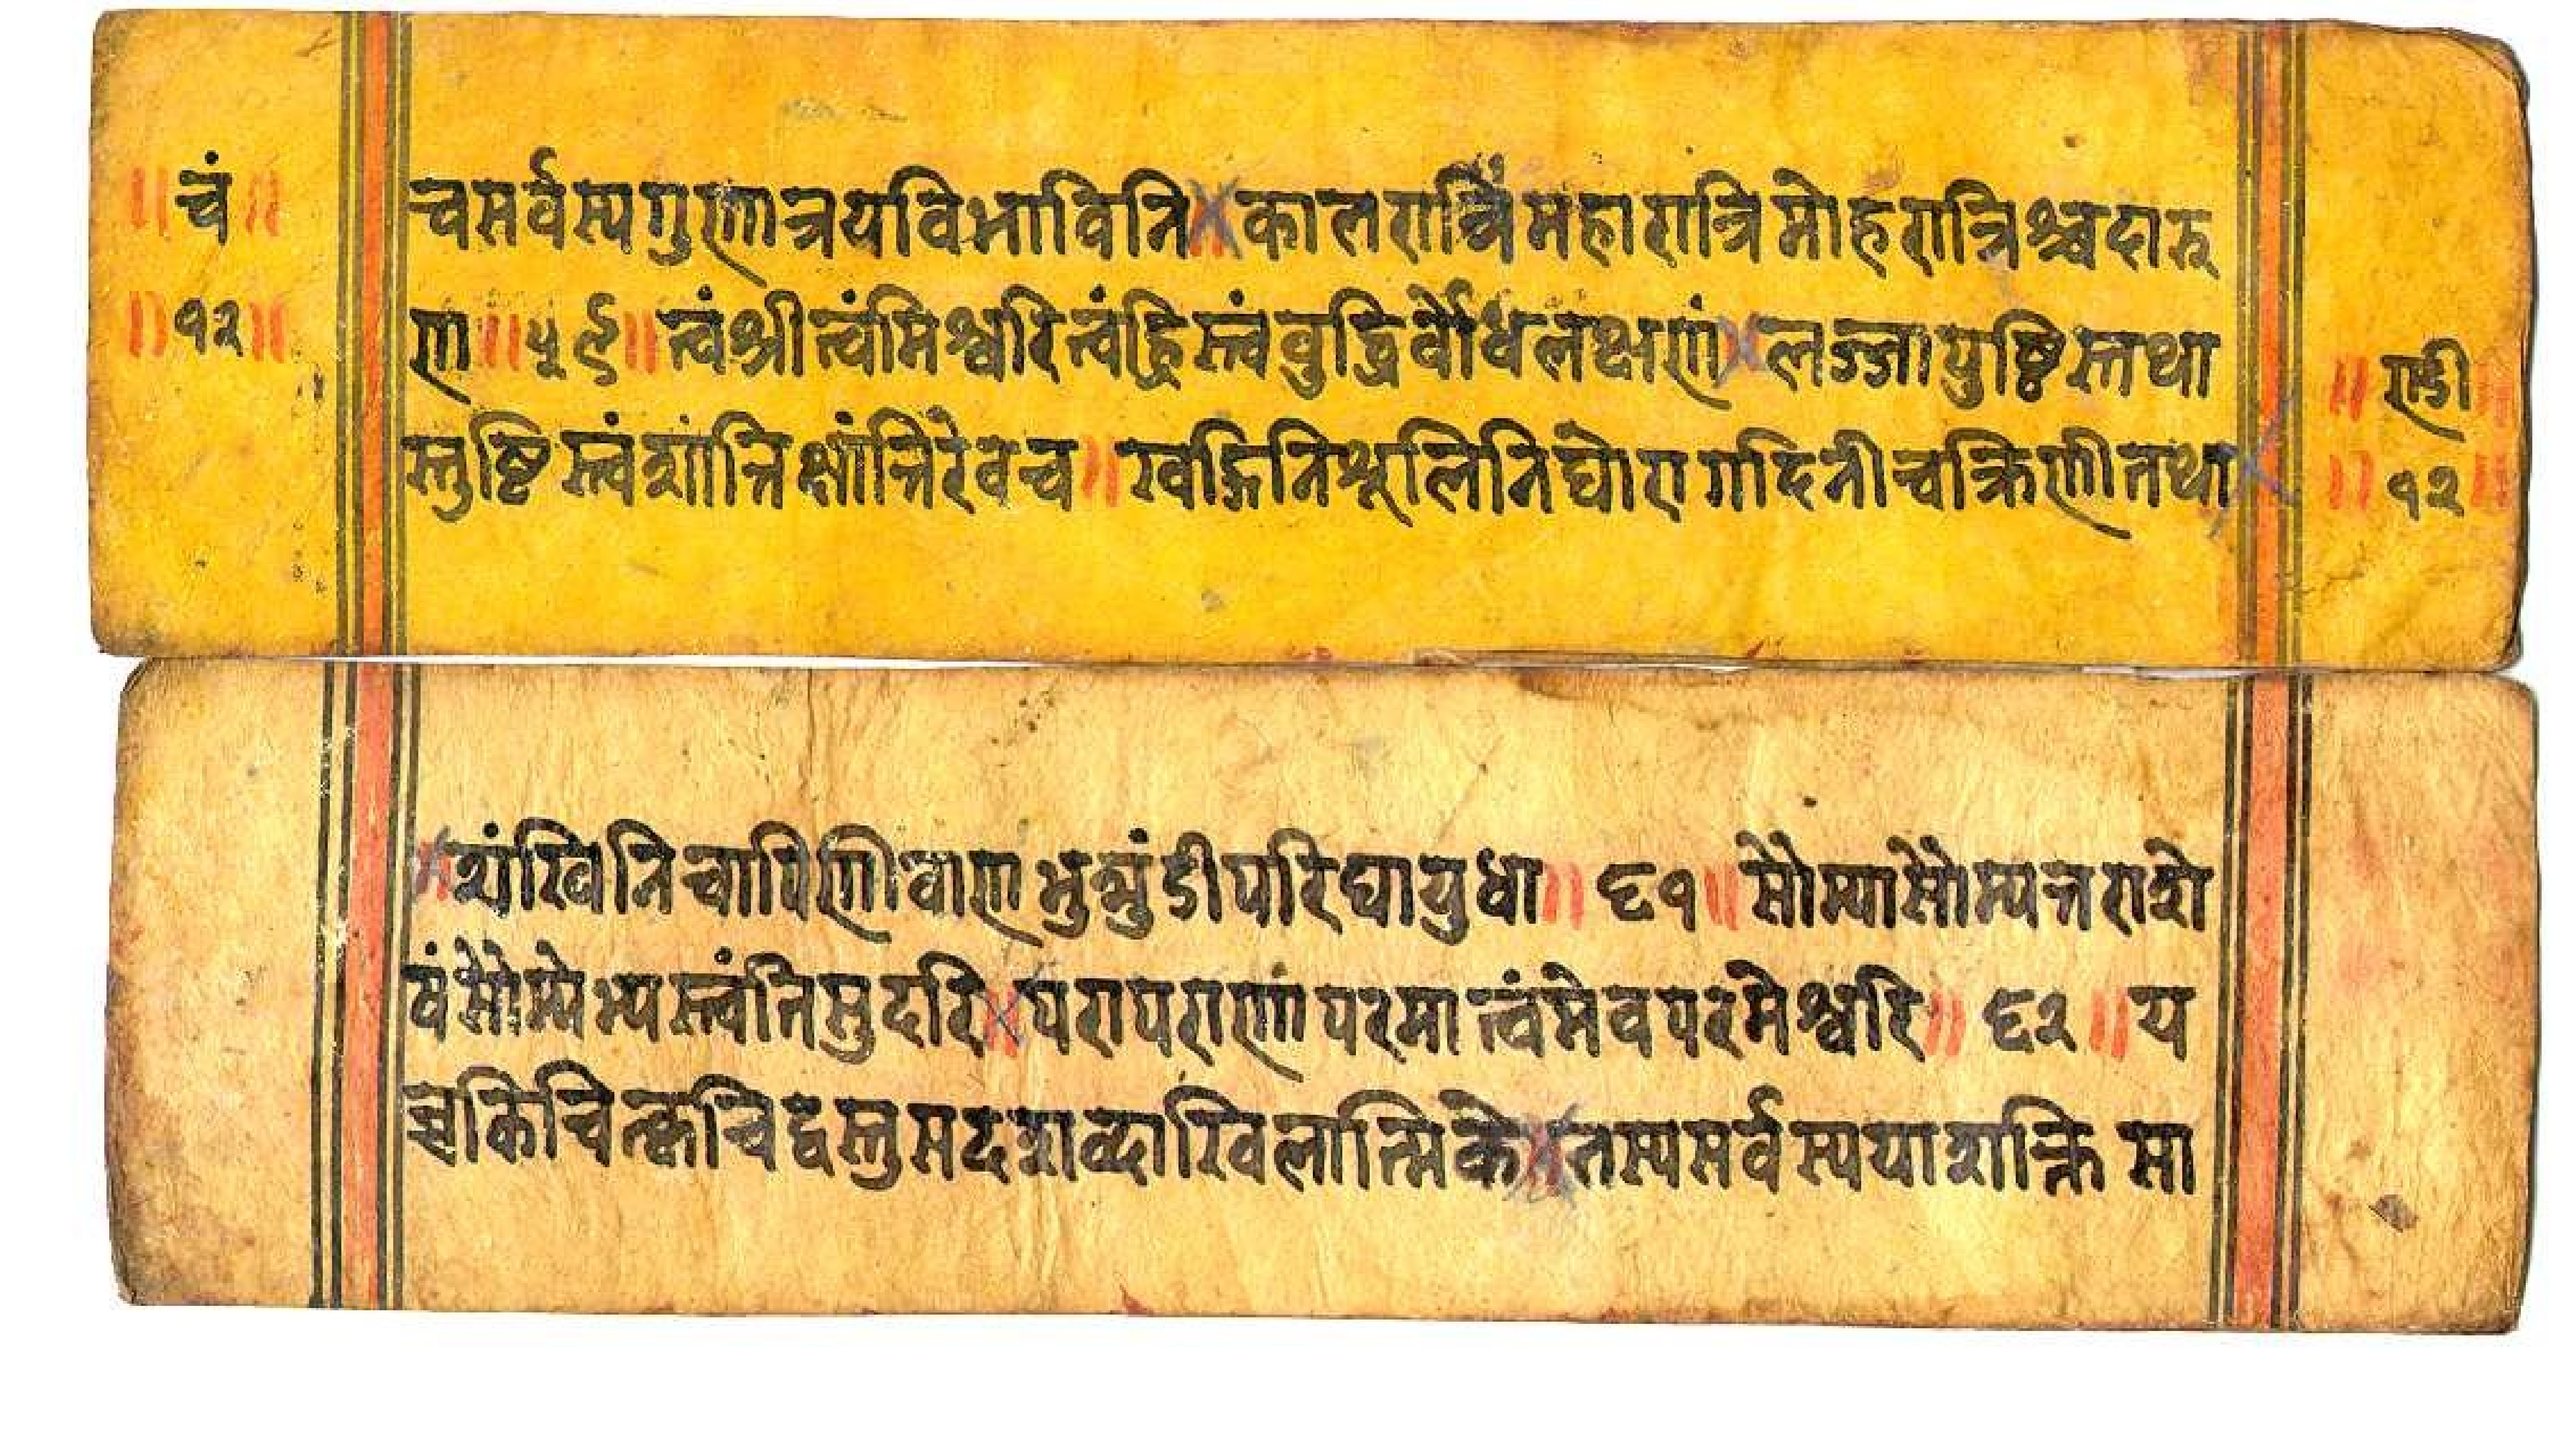 ॥ चं ॥
॥ १२ ॥
चसर्वस्यगुणात्रयविभाविनि॥कालरात्रिंमहारात्रिमोहरात्रिश्चदारू
णा॥५९॥त्वंश्रीत्वंमिश्वरित्वंह्रिस्त्वंवुद्धिर्वोधलक्षणां।लज्जापुष्टिस्तथा
स्तुष्टिस्त्वंशांन्तिक्षांन्तिरेवच॥खड्गिनिश्रूलिनिघोरागदिनीचक्रिणीतथा
॥ ण्डी ॥
॥ १२ ॥
॥शंखिनिचापिणीवाणभुशुंडीपरिघायुधा॥६१॥सोम्यासोंम्यत्तराशे
षंसोम्येभ्यस्त्वंतिसुदरि॥परापराणांपरमात्वंमेवपरमेश्वरि॥६२॥य
च्चकिंचित्क्वचिद्वस्तुसदशद्वाखिलात्मिके॥तस्यसर्वस्ययाशक्तिसा